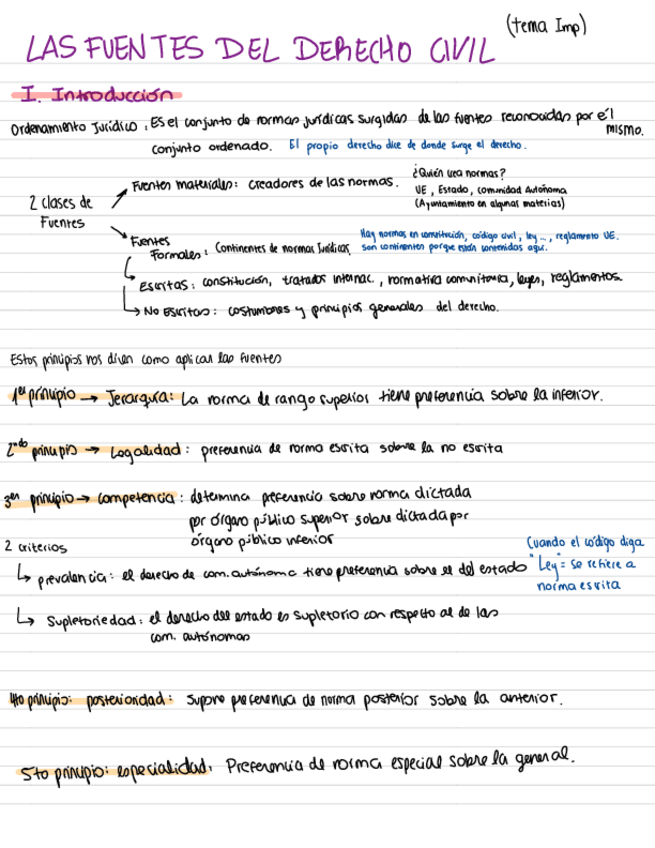 (tema Imp)
LAS FUENTES DEL DERECHO CIVIL
I. Introducción
Ordenamiento Jurídico: Es el conjunto de normas jurídicas surgidas de las fuentes reconocidas por él mismo.
conjunto ordenado. El propio derecho dice de donde surge el derecho.
2 clases de Fuentes
Fuentes materiales: creadores de las normas.
¿Quién crea normas?
UE, Estado, comunidad Autónoma
(Ayuntamiento en algunas materias)
Fuentes Formales: Continentes de normas Jurídicas
Hay normas en constitución, código civil, ley..., reglamento UE.
son continentes porque están contenidas aquí.
Escritas: constitución, tratados internac., normativa comunitaria, leyes, reglamentos
No Escritas: costumbres y principios generales del derecho.
Estos principios nos dicen como aplicar las fuentes
1er principio → Jerarquía: La norma de rango superior tiene preferencia sobre la inferior.
2ndo principio → Legalidad: preferencia de norma escrita sobre la no escrita
3er principio → competencia: determina preferencia sobre norma dictada
por órgano público superior sobre dictada por
órgano público inferior
2 criterios
Cuando el código diga
"Ley" = se refiere a
norma escrita
↳ prevalencia: el derecho de com. autónoma tiene preferencia sobre el del estado
↳ Supletoriedad: el derecho del estado es supletorio con respecto al de las
com. autónomas
4to principio: posterioridad: supone preferencia de norma posterior sobre la anterior.
5to principio: especialidad: Preferencia de norma especial sobre la general.